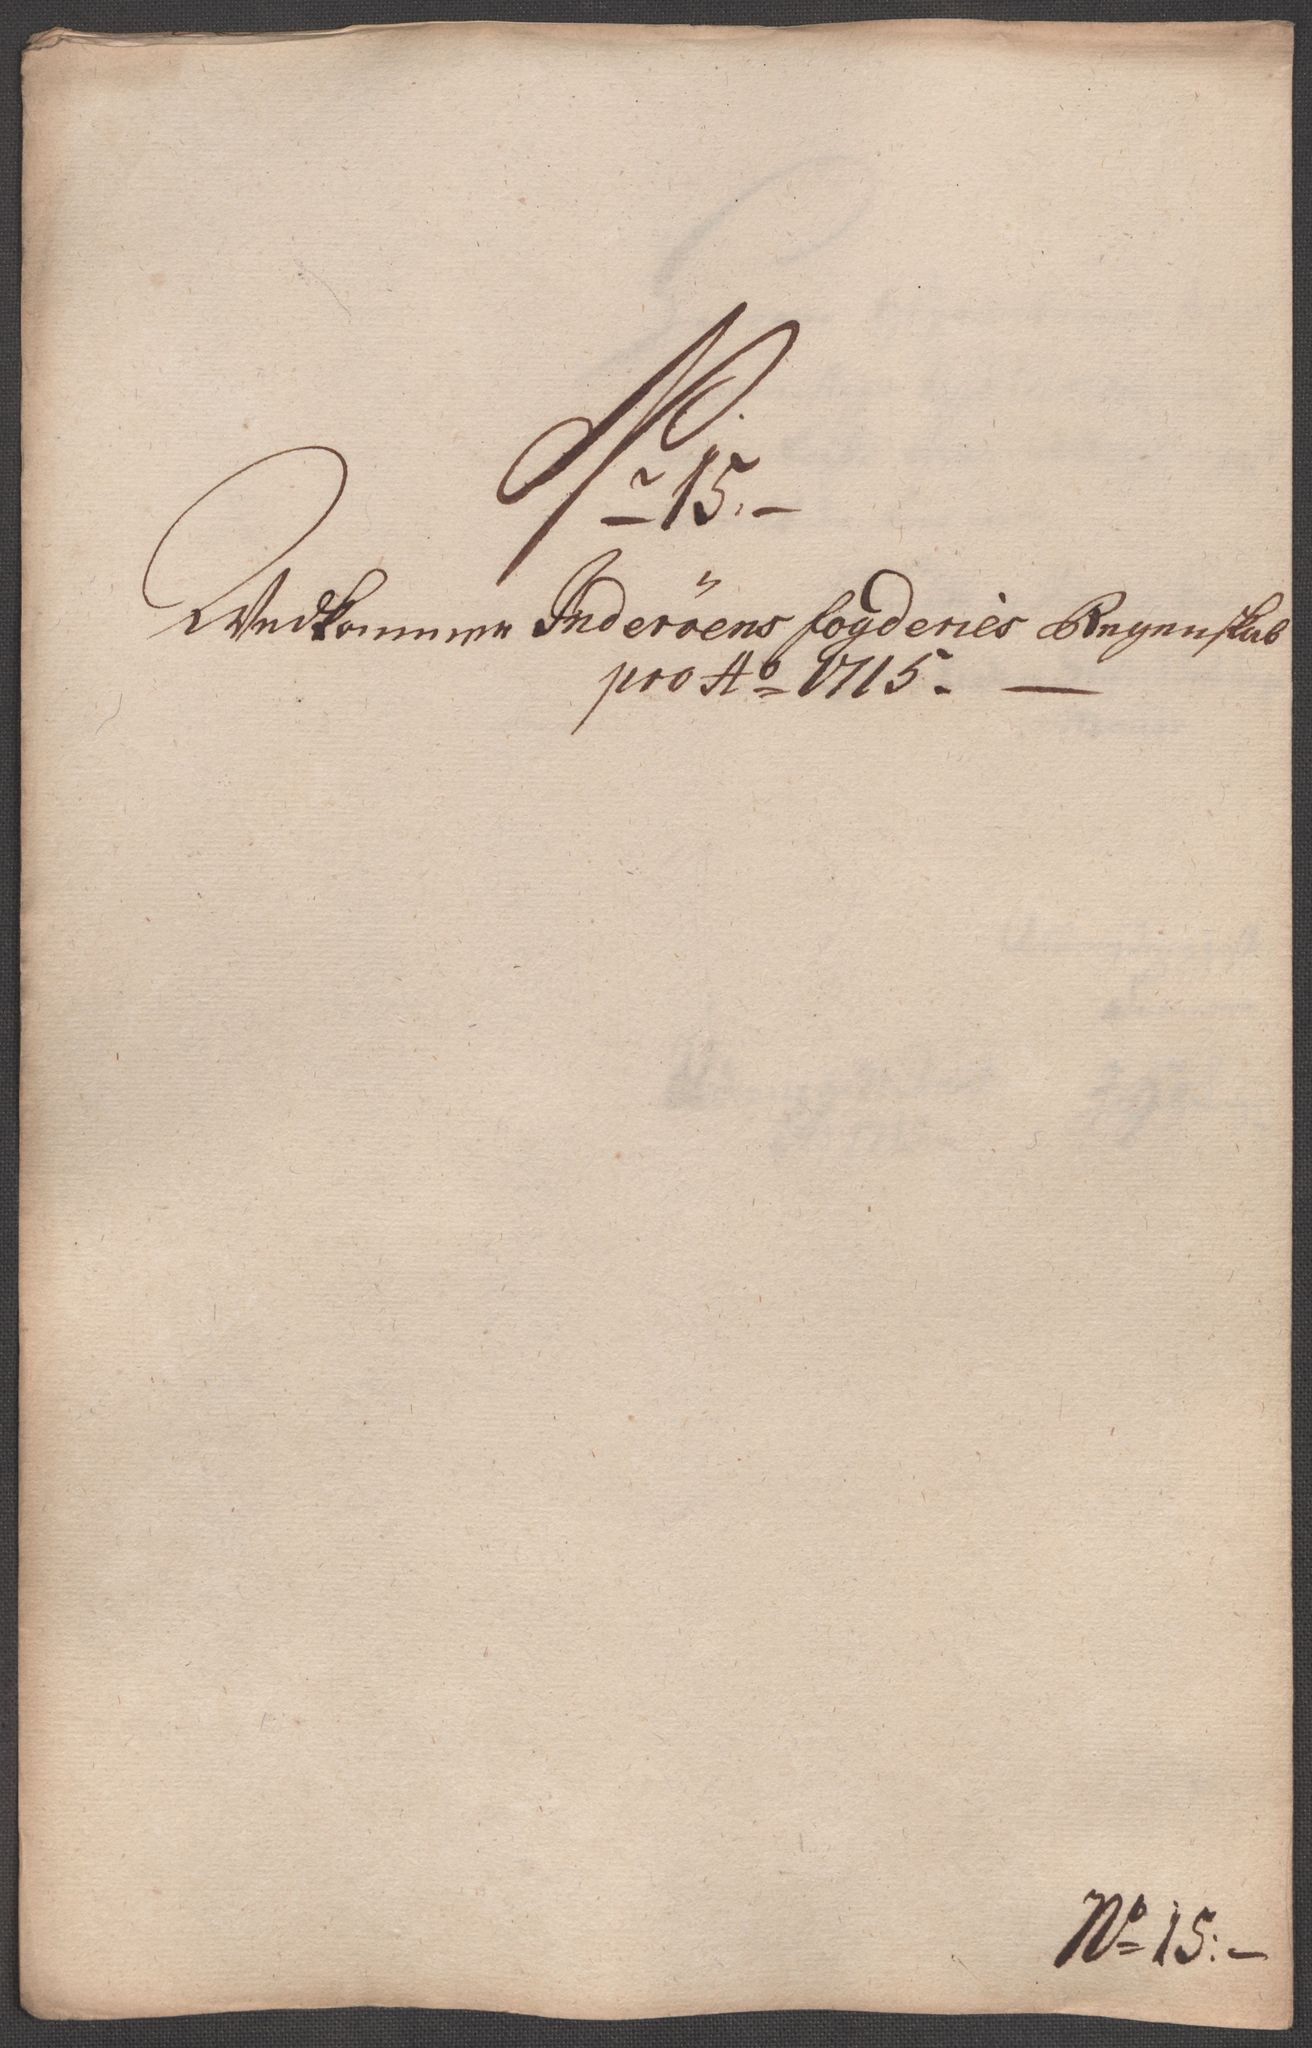 Nr 15.
Vedkommen Inderöens fogderies Regenskab
pro Ao 1715.
No 15.